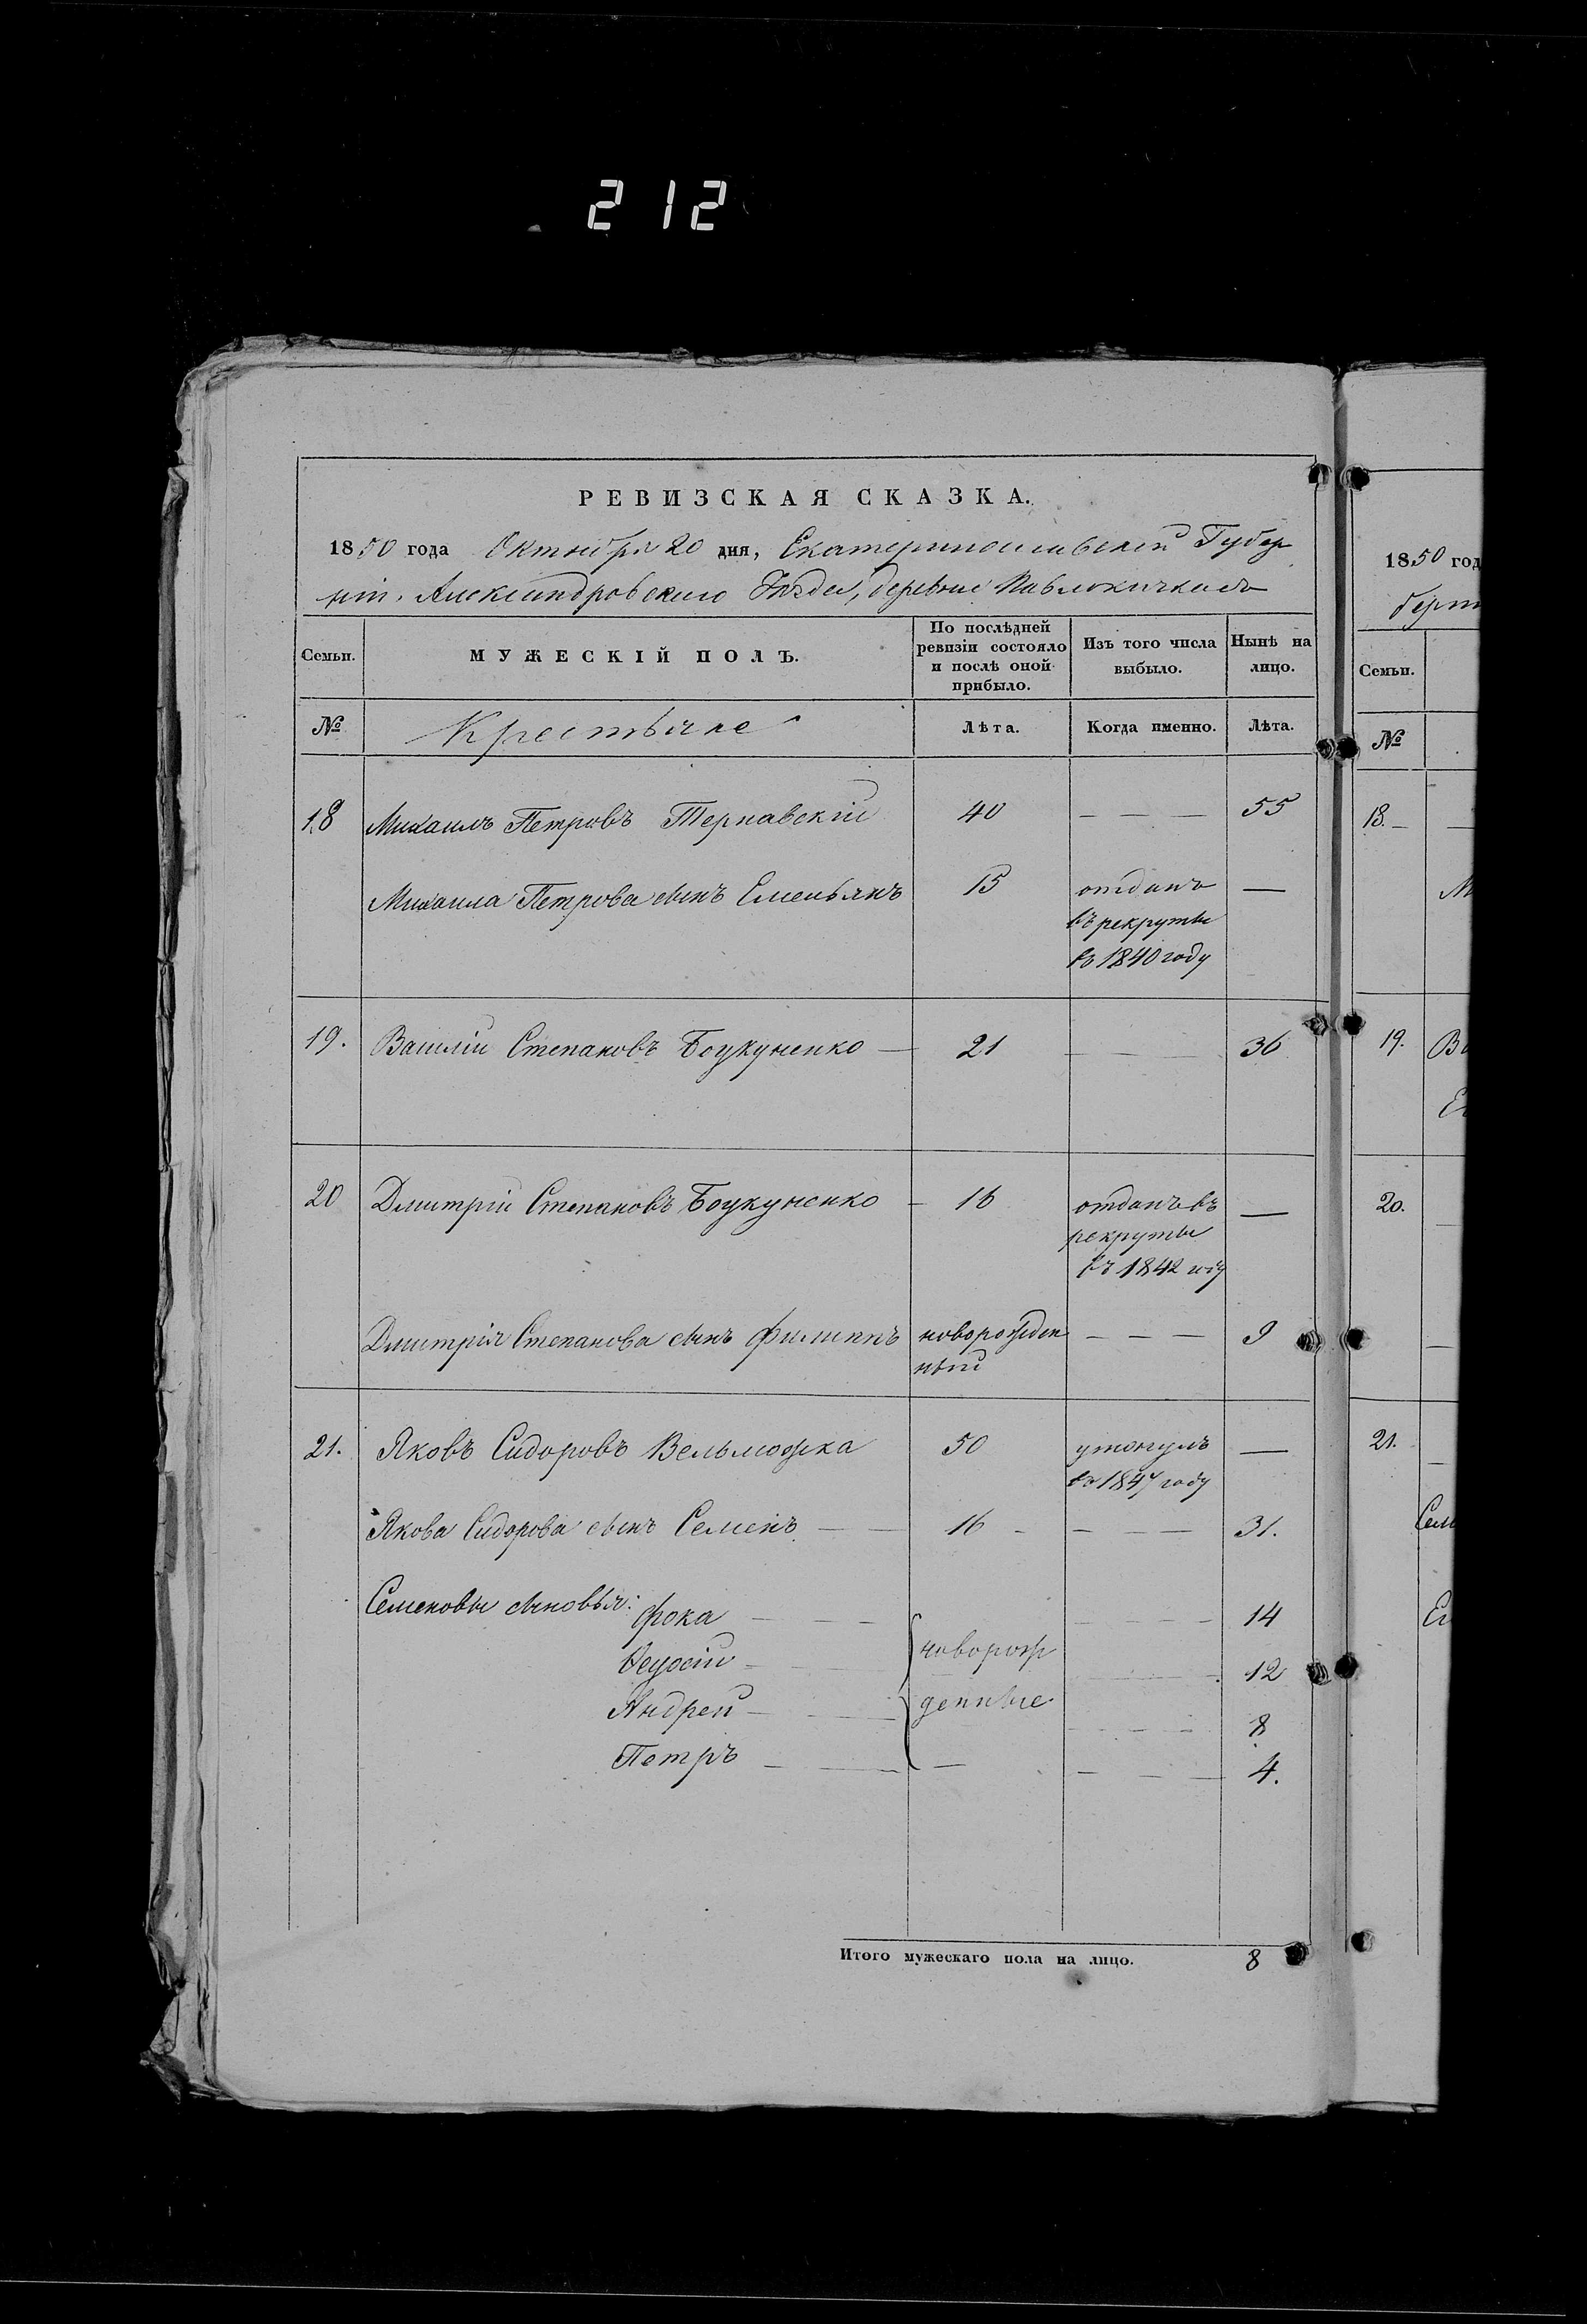 212
РЕВИЗСКАЯ СКАЗКА.
1850 года Октября 20 дня, Екатеринославской Губер
ніи. Александровского Уѣзда, деревни Павлокичкасъ
Семьи.
МУЖЕСКІЙ ПОЛЪ.
По послѣдней ревизіи состояло и послѣ оной прибыло.
Изъ того числа выбыло.
Нынѣ на лицо.
№
Крестьяне
Лѣта.
Когда именно.
Лѣта.
18 Михаилъ Петровъ Тернавскій 40 — — — 55
Михаила Петрова сынъ Емельянъ 15 отданъ —
въ рекруты
въ 1840 году
19. Василій Степановъ Боцкуненко — 21 — — — 36
20 Дмитрій Степановъ Боцкуненко — 16 отданъ въ —
рекруты
въ 1842 году
Дмитрія Степанова сынъ Филиппъ новорожден — — — 9
ный
21. Яковъ Сидоровъ Вельможка 50 утонулъ —
въ 1847 году
Якова Сидорова сынъ Семенъ — — 16 — — — 31.
Семеновы сыновья: Фока — — — новорож — — — 14
Ѳедосій — — — — 12
Андрей — — денные — — — 8
Петръ — — — — — — 4.
Итого мужескаго пола на лицо. 8
1850 год
берн
Семьи.
№
18. —
М
19. Ва
Е
20.
—
—
21.
—
Сем
Ег